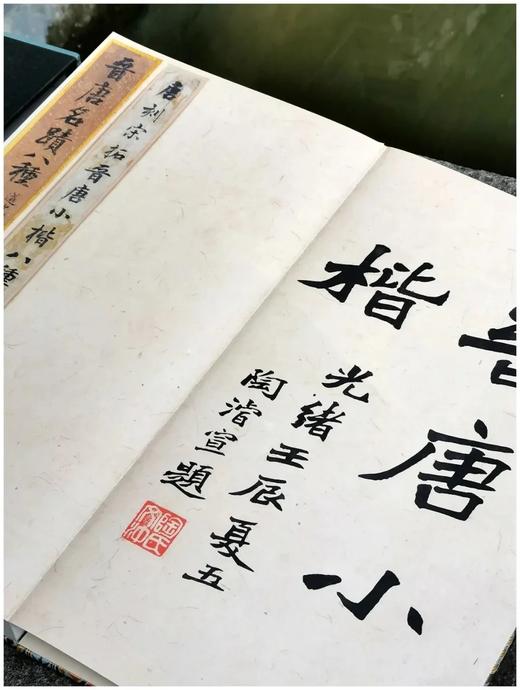 晉唐小
楷
光緒壬辰夏五
陶濬宣題
陶氏
文沖
唐刻宋拓晉唐小楷八種
晉唐名蹟八種